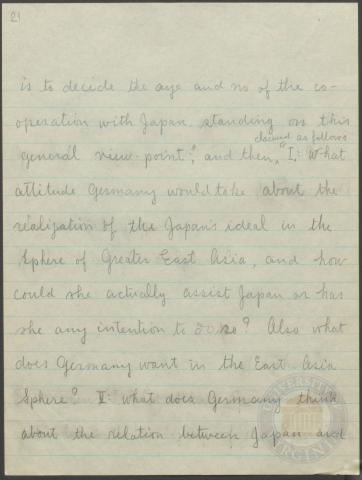 21
is to decide the aye and no of the co-
operation with Japan standing on this
claimed as follows
general view-point; and then, "I: What
attitude Germany would take about the
realization of the Japan's ideal in the
Sphere of Greater East Asia, and how
could she actually assist Japan or has
she any intention to do so? Also what
does Germany want in the East Asia
Sphere? II: what does Germany think
about the relation between Japan and
UNIVERSITY
VIRGINIA